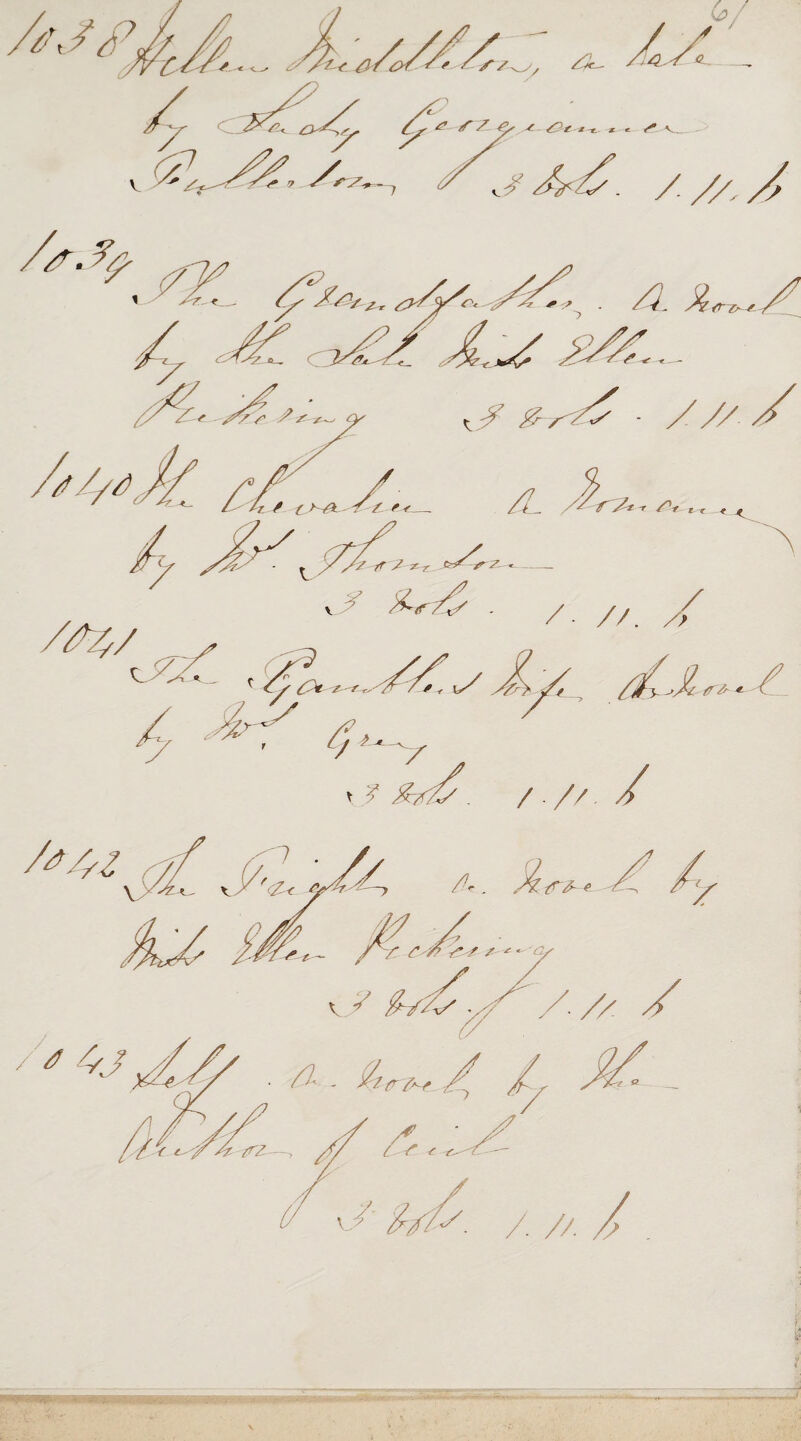 61
1038 Hellen Middleton, a tale
by Lady Georgianna
Fullerton 3 Vols. 1. 11. 6
1039
The Grandfather. A Novel
by the Late Miss Ellen
Pickering 3 vols. 1. 11. 6
1040 The Chevalier A Romance
by Mrs. Thomson
3 Vols. 1. 11. 6
1041
The Gamblers Wife A Novel
by Mrs. Grey
3 Vols. 1. 11. 6
1042
The Fright a Novel by
Miss Ellen Pickering
3 Vols. 1. 11. 6
1043 Self. a Novel by the
Author of Cecil
3 Vols. 1. 11. 6.